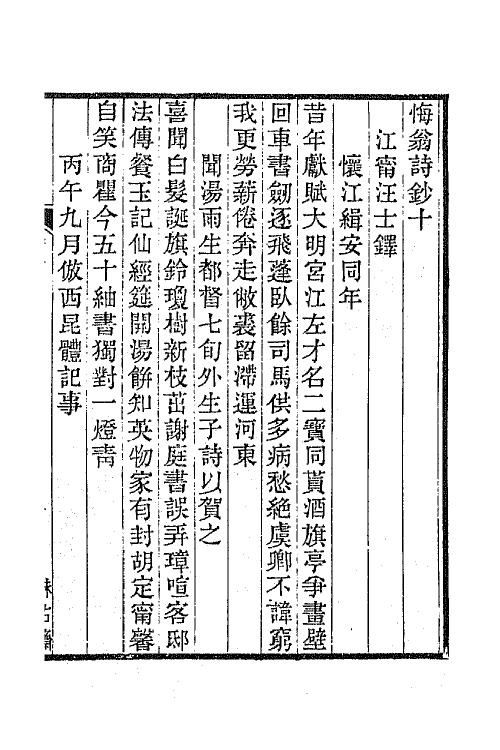 悔翁詩鈔十
江甯汪士鐸
懷江緝安同年
昔年獻賦大明宮江左才名二寶同貰酒旗亭爭畫壁
回車書劒逐飛蓬臥餘司馬供多病愁絶虞卿不諱窮
我更勞薪倦奔走敝裘留滯運河東
聞湯雨生都督七旬外生子詩以賀之
喜聞白髮誕旗鈴瓊樹新枝茁謝庭書誤弄璋喧客邸
法傳餐玉記仙經筵開湯餅知英物家有封胡定甯馨
自笑商瞿今五十紬書獨對一燈靑
丙午九月倣西昆體記事